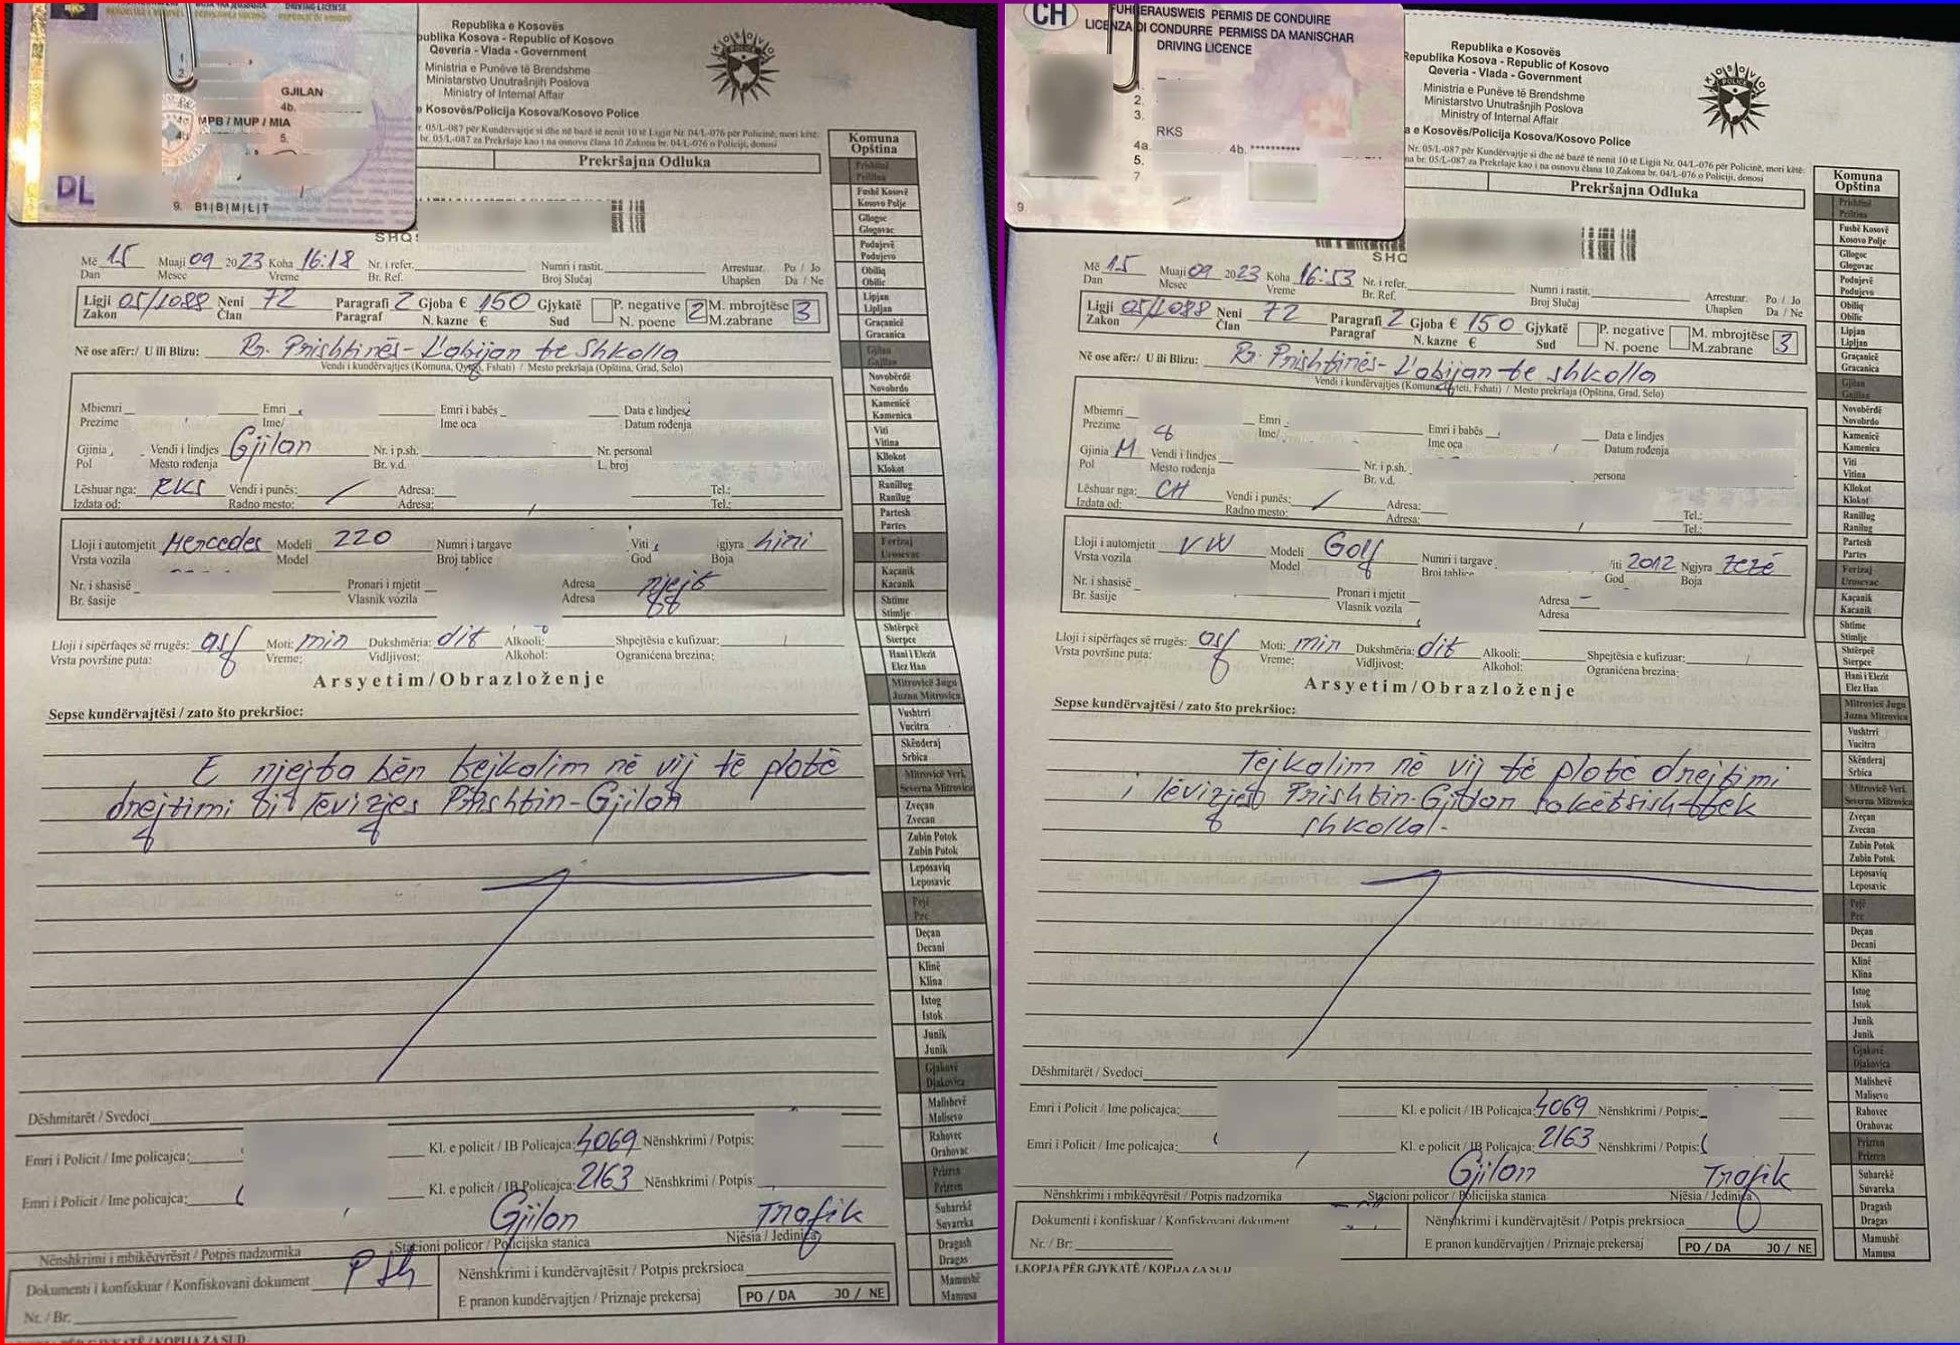 DRIVING LICENSE
GJILAN
4b.
MPB / MUP / MIA
5.
DL
9. B1|B|M|L|T
Republika e Kosovës
Republika Kosova - Republic of Kosovo
Qeveria - Vlada - Government
Ministria e Punëve të Brendshme
Ministarstvo Unutrašnjih Poslova
Ministry of Internal Affair
e Kosovës/Policija Kosova/Kosovo Police
Nr. 05/L-087 për Kundërvajtje si dhe në bazë të nenit 10 të Ligjit Nr. 04/L-076 për Policinë, mori këtë:
br. 05/L-087 za Prekršaje kao i na osnovu člana 10 Zakona br. 04/L-076 o Policiji, donosi
Prekršajna Odluka
Më 15 Muaji 09 2023 Koha 16:18 Nr. i refer. Numri i rastit. Arrestuar. Po / Jo
Dan Mesec Vreme Br. Ref. Broj Slučaj Uhapšen Da / Ne
Ligji 05/L088 Neni 72 Paragrafi 2 Gjoba € 150 Gjykatë P. negative 2 M. mbrojtëse 3
Zakon Član Paragraf N. kazne € Sud N. poene M.zabrane
Në ose afër:/ U ili Blizu: Rr. Prishtinës - Llabjan te Shkolla
Vendi i kundërvajtjes (Komuna, Qyteti, Fshati) / Mesto prekršaja (Opština, Grad, Selo)
Mbiemri Emri Emri i babës Data e lindjes
Prezime Ime/ Ime oca Datum rođenja
Gjinia Vendi i lindjes Gjilan Nr. i p.sh. Nr. personal
Pol Mesto rođenja Br. v.d. L. broj
Lëshuar nga: RKS Vendi i punës: / Adresa: Tel.:
Izdata od: Radno mesto: Adresa: Tel.:
Lloji i automjetit Mercedes Modeli 220 Numri i targave Viti Ngjyra hiri
Vrsta vozila Model Broj tablice God Boja
Nr. i shasisë Pronari i mjetit Adresa njejt
Br. šasije Vlasnik vozila Adresa
Lloji i sipërfaqes së rrugës: asf Moti: min Dukshmëria: dit Alkooli: Shpejtësia e kufizuar:
Vrsta površine puta: Vreme: Vidljivost: Alkohol: Ograničena brezina:
Arsyetim/Obrazloženje
Sepse kundërvajtësi / zato što prekršioc:
E njejta bën tejkalim në vij të plotë
drejtimi i lëvizjes Prishtin-Gjilan
Dëshmitarët / Svedoci
Emri i Policit / Ime policajca: Kl. e policit / IB Policajca: 4069 Nënshkrimi / Potpis:
Emri i Policit / Ime policajca: Kl. e policit / IB Policajca: 2163 Nënshkrimi / Potpis:
Gjilan Trafik
Nënshkrimi i mbikëqyrësit / Potpis nadzornika Stacioni policor / Policijska stanica Njësia / Jedinica
Dokumenti i konfiskuar / Konfiskovani dokument PSh Nënshkrimi i kundërvajtësit / Potpis prekrsioca
Nr. / Br: E pranon kundërvajtjen / Priznaje prekersaj PO / DA JO / NE
Komuna
Opština
Prishtinë
Priština
Fushë Kosovë
Kosovo Polje
Gllogoc
Glogovac
Podujevë
Podujevo
Obiliq
Obilic
Lipjan
Lipljan
Graçanicë
Gracanica
Gjilan
Gnjilane
Novobërdë
Novobrdo
Kamenicë
Kamenica
Viti
Vitina
Kllokot
Klokot
Ranillug
Ranilug
Partesh
Partes
Ferizaj
Urosevac
Kaçanik
Kacanik
Shtime
Stimlje
Shtërpcë
Sterpce
Hani i Elezit
Elez Han
Mitrovicë Jugu
Juzna Mitrovica
Vushtrri
Vucitrn
Skënderaj
Srbica
Mitrovicë Veri.
Severna Mitrovica
Zveçan
Zvecan
Zubin Potok
Zubin Potok
Leposaviq
Leposavic
Pejë
Pec
Deçan
Decani
Klinë
Klina
Istog
Istok
Junik
Junik
Gjakovë
Djakovica
Malishevë
Malisevo
Rahovec
Orahovac
Prizren
Prizren
Suharekë
Suvareka
Dragash
Dragas
Mamushë
Mamusa
CH FÜHRERAUSWEIS PERMIS DE CONDUIRE
LICENZA DI CONDURRE PERMISS DA MANISCHAR
DRIVING LICENCE
1.
2.
3.
RKS
4a. 4b. **********
5.
7
9
Republika e Kosovës
Republika Kosova - Republic of Kosovo
Qeveria - Vlada - Government
Ministria e Punëve të Brendshme
Ministarstvo Unutrašnjih Poslova
Ministry of Internal Affair
a e Kosovës/Policija Kosova/Kosovo Police
Nr. 05/L-087 për Kundërvajtje si dhe në bazë të nenit 10 të Ligjit Nr. 04/L-076 për Policinë, mori këtë:
br. 05/L-087 za Prekršaje kao i na osnovu člana 10 Zakona br. 04/L-076 o Policiji, donosi
Prekršajna Odluka
Më 15 Muaji 09 2023 Koha 16:53 Nr. i refer. Numri i rastit. Arrestuar. Po / Jo
Dan Mesec Vreme Br. Ref. Broj Slučaj Uhapšen Da / Ne
Ligji 05/L088 Neni 72 Paragrafi 2 Gjoba € 150 Gjykatë P. negative M. mbrojtëse 3
Zakon Član Paragraf N. kazne € Sud N. poene M.zabrane
Në ose afër:/ U ili Blizu: Rr. Prishtinës - Llabjan te shkolla
Vendi i kundërvajtjes (Komuna, Qyteti, Fshati) / Mesto prekršaja (Opština, Grad, Selo)
Mbiemri Emri Emri i babës Data e lindjes
Prezime Ime/ Ime oca Datum rođenja
Gjinia M Vendi i lindjes Nr. i p.sh. persona
Pol Mesto rođenja Br. v.d.
Lëshuar nga: CH Vendi i punës: / Adresa: Tel.:
Izdata od: Radno mesto: Adresa: Tel.:
Lloji i automjetit VW Modeli Golf Numri i targave Viti 2012 Ngjyra zezë
Vrsta vozila Model Broj tablice God Boja
Nr. i shasisë Pronari i mjetit Adresa
Br. šasije Vlasnik vozila Adresa
Lloji i sipërfaqes së rrugës: asf Moti: min Dukshmëria: dit Alkooli: Shpejtësia e kufizuar:
Vrsta površine puta: Vreme: Vidljivost: Alkohol: Ograničena brezina:
Arsyetim/Obrazloženje
Sepse kundërvajtësi / zato što prekršioc:
Tejkalim në vij të plotë drejtimi
i lëvizjes Prishtin-Gjilan
shkolla.
Dëshmitarët / Svedoci
Emri i Policit / Ime policajca: Kl. e policit / IB Policajca: 4069 Nënshkrimi / Potpis:
Emri i Policit / Ime policajca: Kl. e policit / IB Policajca: 2163 Nënshkrimi / Potpis:
Gjilan Trafik
Nënshkrimi i mbikëqyrësit / Potpis nadzornika Stacioni policor / Policijska stanica Njësia / Jedinica
Dokumenti i konfiskuar / Konfiskovani dokument Nënshkrimi i kundërvajtësit / Potpis prekrsioca
Nr. / Br: E pranon kundërvajtjen / Priznaje prekersaj PO / DA JO / NE
I.KOPJA PËR GJYKATË / KOPIJA ZA SUD
Komuna
Opština
Prishtinë
Priština
Fushë Kosovë
Kosovo Polje
Gllogoc
Glogovac
Podujevë
Podujevo
Obiliq
Obilic
Lipjan
Lipljan
Graçanicë
Gracanica
Gjilan
Gnjilane
Novobërdë
Novobrdo
Kamenicë
Kamenica
Viti
Vitina
Kllokot
Klokot
Ranillug
Ranilug
Partesh
Partes
Ferizaj
Urosevac
Kaçanik
Kacanik
Shtime
Stimlje
Shtërpcë
Sterpce
Hani i Elezit
Elez Han
Mitrovicë Jugu
Juzna Mitrovica
Vushtrri
Vucitrn
Skënderaj
Srbica
Mitrovicë Veri.
Severna Mitrovica
Zveçan
Zvecan
Zubin Potok
Zubin Potok
Leposaviq
Leposavic
Pejë
Pec
Deçan
Decani
Klinë
Klina
Istog
Istok
Junik
Junik
Gjakovë
Djakovica
Malishevë
Malisevo
Rahovec
Orahovac
Prizren
Prizren
Suharekë
Suvareka
Dragash
Dragas
Mamushë
Mamusa